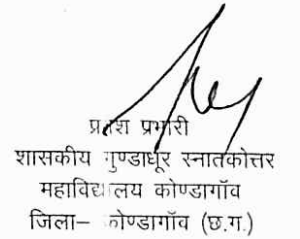 शासकीय गुण्डाधूर स्नातकोत्तर
महाविद्यालय कोण्डागॉव
जिला– कोण्डागॉव (छ.ग.)